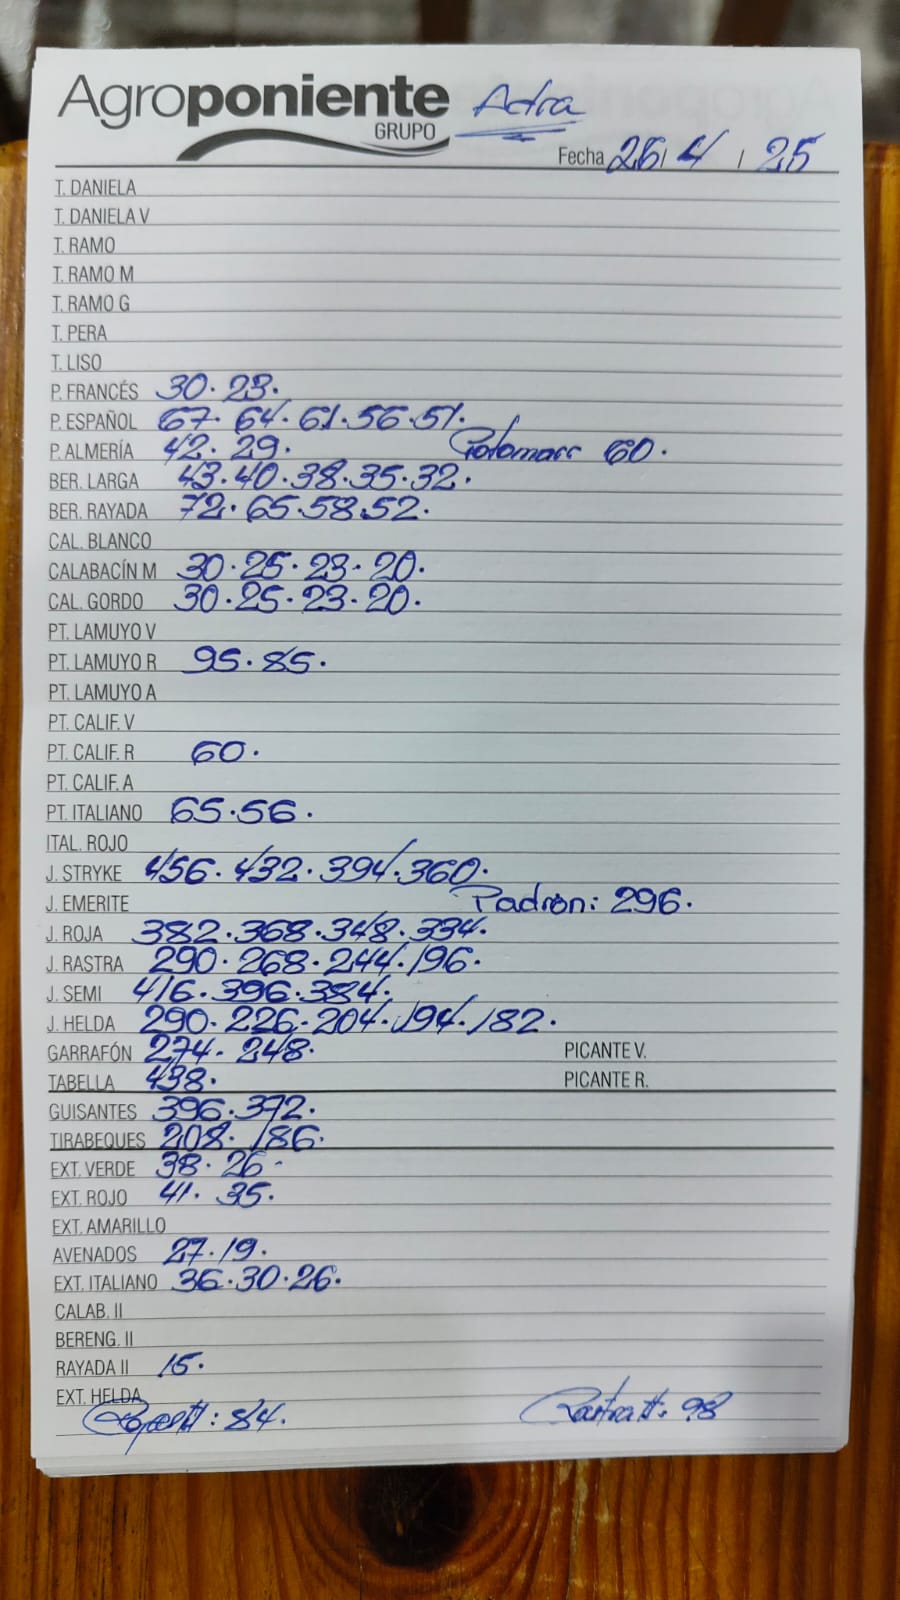 Agroponiente Adra
GRUPO
Fecha 26/ 4 / 25
T. DANIELA
T. DANIELA V
T. RAMO
T. RAMO M
T. RAMO G
T. PERA
T. LISO
P. FRANCÉS 30. 23.
P. ESPAÑOL 67. 64. 61. 56. 51.
P. ALMERÍA 42. 29. 60.
BER. LARGA 43. 40. 38. 35. 32.
BER. RAYADA 72. 65. 58. 52.
CAL. BLANCO
CALABACÍN M 30. 25. 23. 20.
CAL. GORDO 30. 25. 23. 20.
PT. LAMUYO V
PT. LAMUYO R 95. 85.
PT. LAMUYO A
PT. CALIF. V
PT. CALIF. R 60.
PT. CALIF. A
PT. ITALIANO 65. 56.
ITAL. ROJO
J. STRYKE 456. 432. 394. 360.
J. EMERITE Padrón: 296.
J. ROJA 382. 368. 348. 334.
J. RASTRA 290. 268. 244. 196.
J. SEMI 416. 396. 384.
J. HELDA 290. 226. 204. 194. 182.
GARRAFÓN 274. 248. PICANTE V.
TABELLA 438. PICANTE R.
GUISANTES 396. 372.
TIRABEQUES 208. 186.
EXT. VERDE 38. 26.
EXT. ROJO 41. 35.
EXT. AMARILLO
AVENADOS 27. 19.
EXT. ITALIANO 36. 30. 26.
CALAB. II
BERENG. II
RAYADA II 15.
EXT. HELDA
: 84. Rastra II: 98